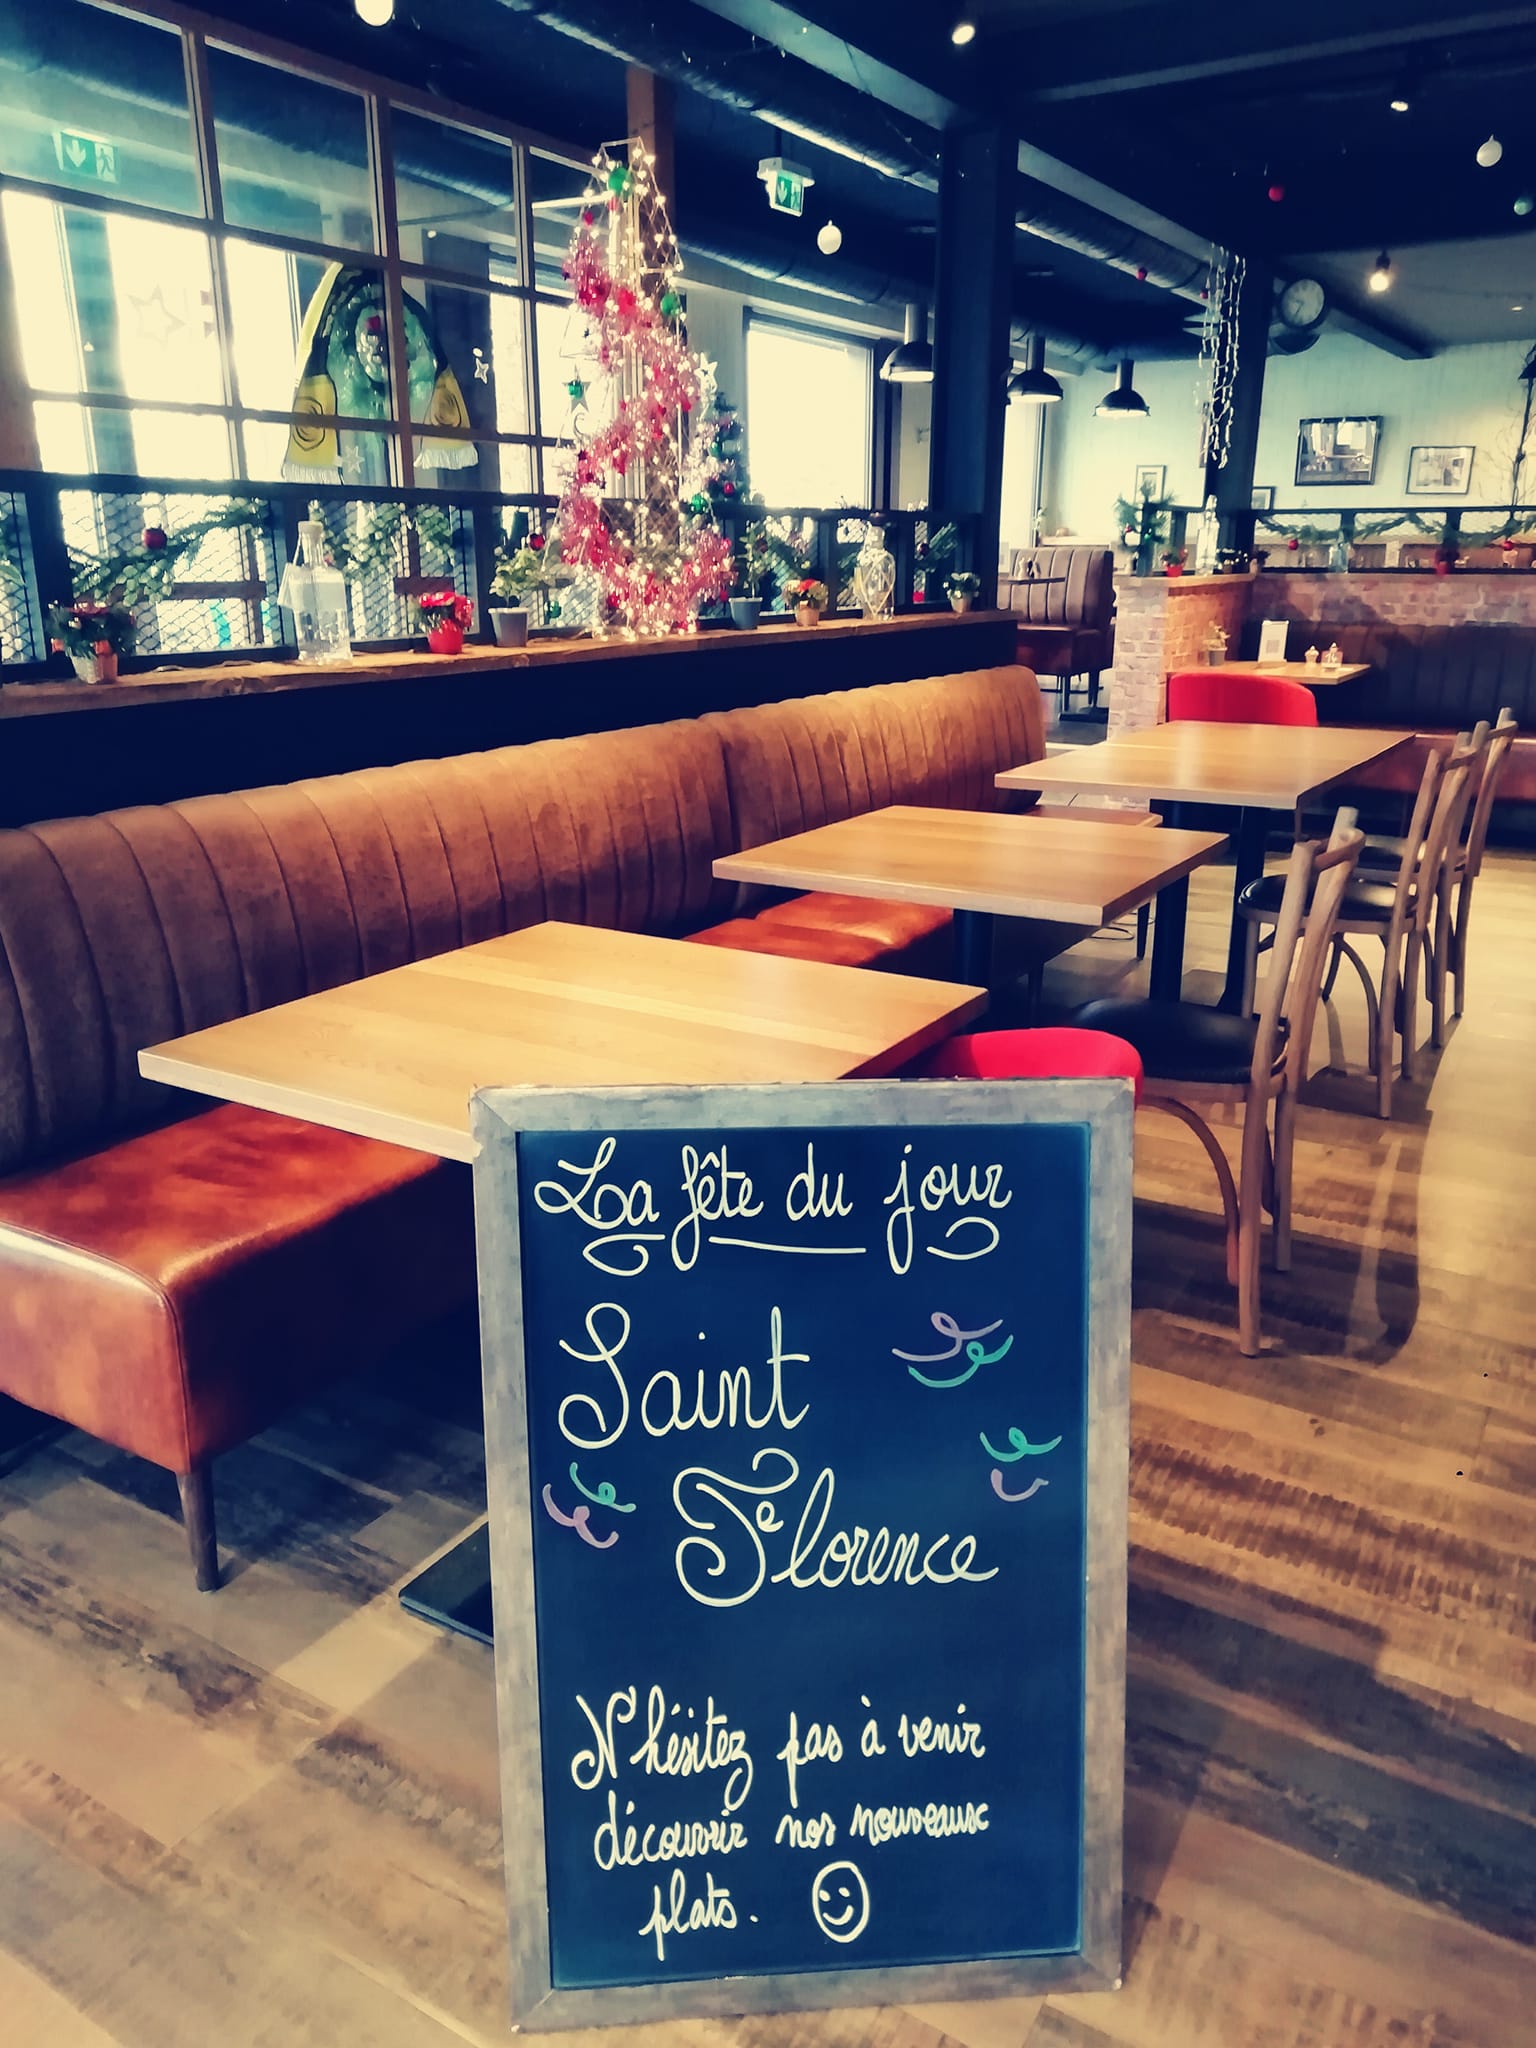 La fête du jour
Saint
Florence
N'hésitez pas à venir
découvrir nos nouveaux
plats.